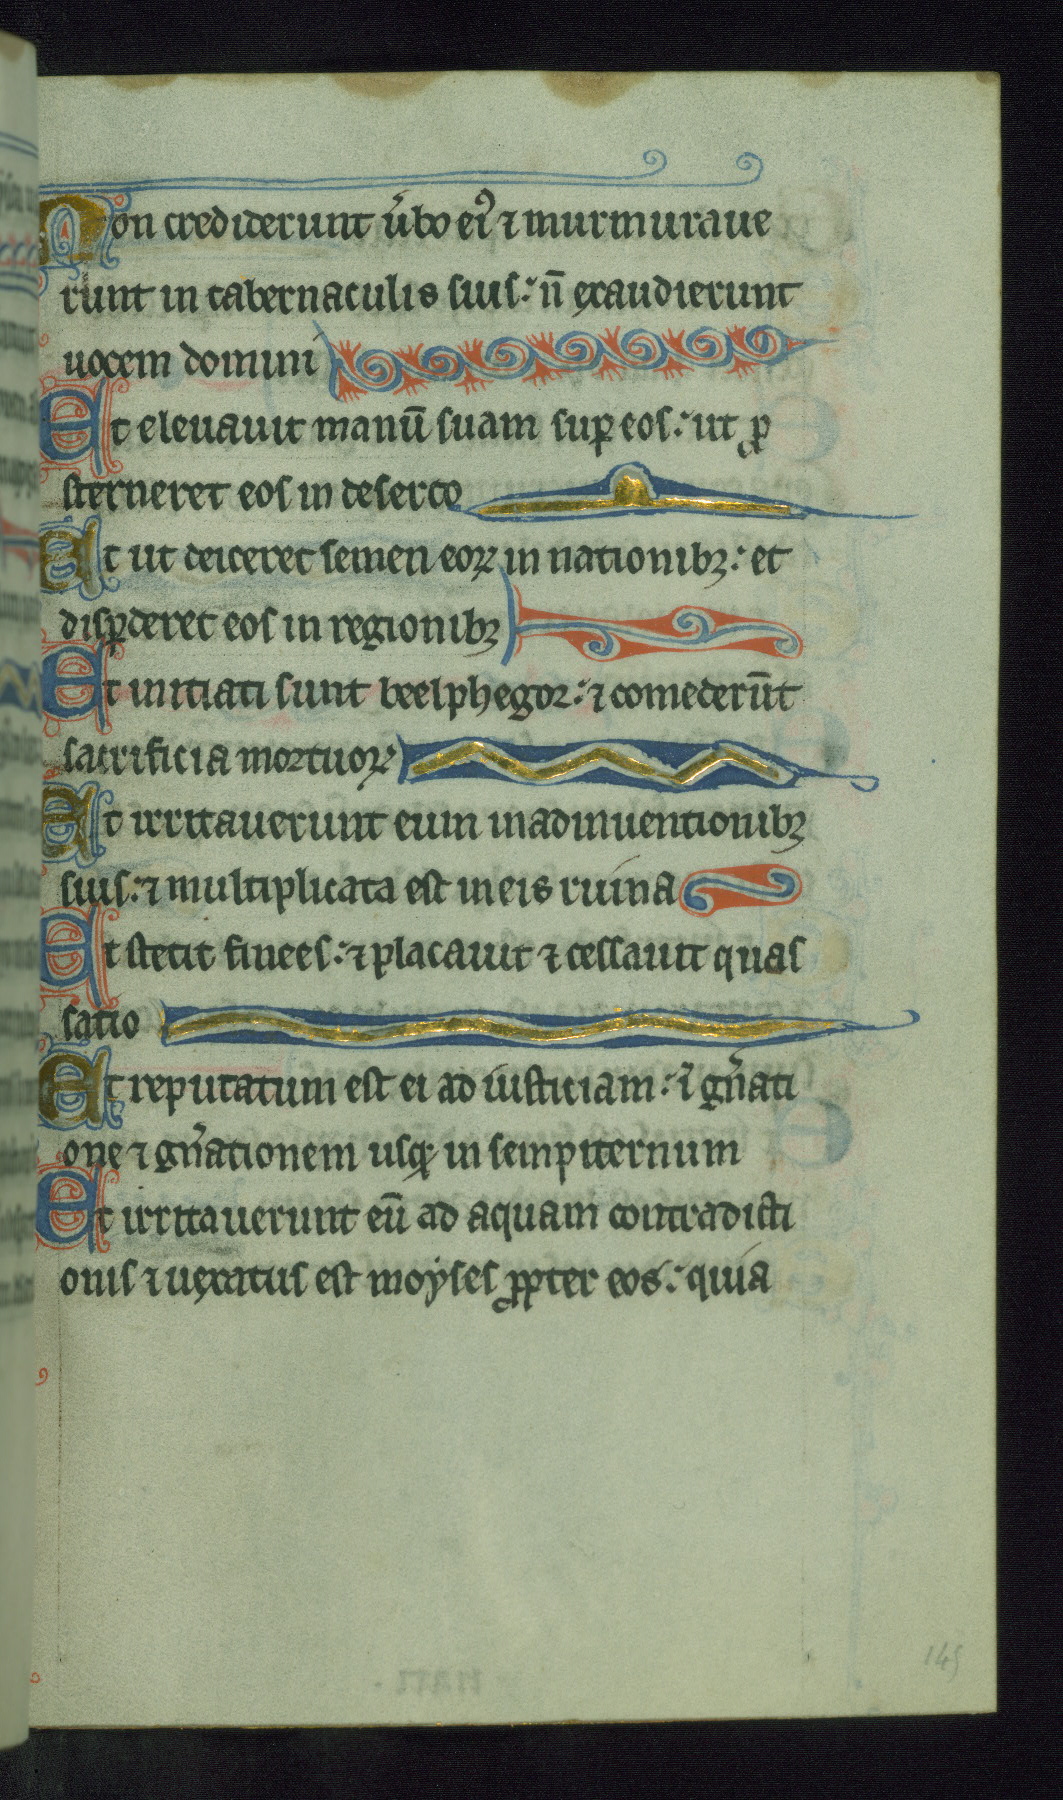 Non crediderunt v̓bo ei᷒ ⁊ murmuraue
runt in tabernaculis suis: n̄ exaudierunt
uocem domini
Et eleuauit manū suam suꝑ eos: ut ꝓ
sterneret eos in deserto
Et ut deiceret semen eoꝝ in nationibꝫ: et
disꝑderet eos in regionibꝫ
Et initiati sunt beelphegor: ⁊ comederūt
sacrificia mortuoꝝ
Et irritauerunt eum in adinuentionibꝫ
suis: ⁊ multiplicata est in eis ruina
Et stetit finees: ⁊ placauit ⁊ cessauit quas
satio
Et reputatum est ei ad iusticiam: ī gn̓ati
one ⁊ gn̓ationem usqꝫ in sempiternum
Et irritauerunt eū ad aquam contradicti
onis ⁊ uexatus est moyses ꝓpter eos: quia
145